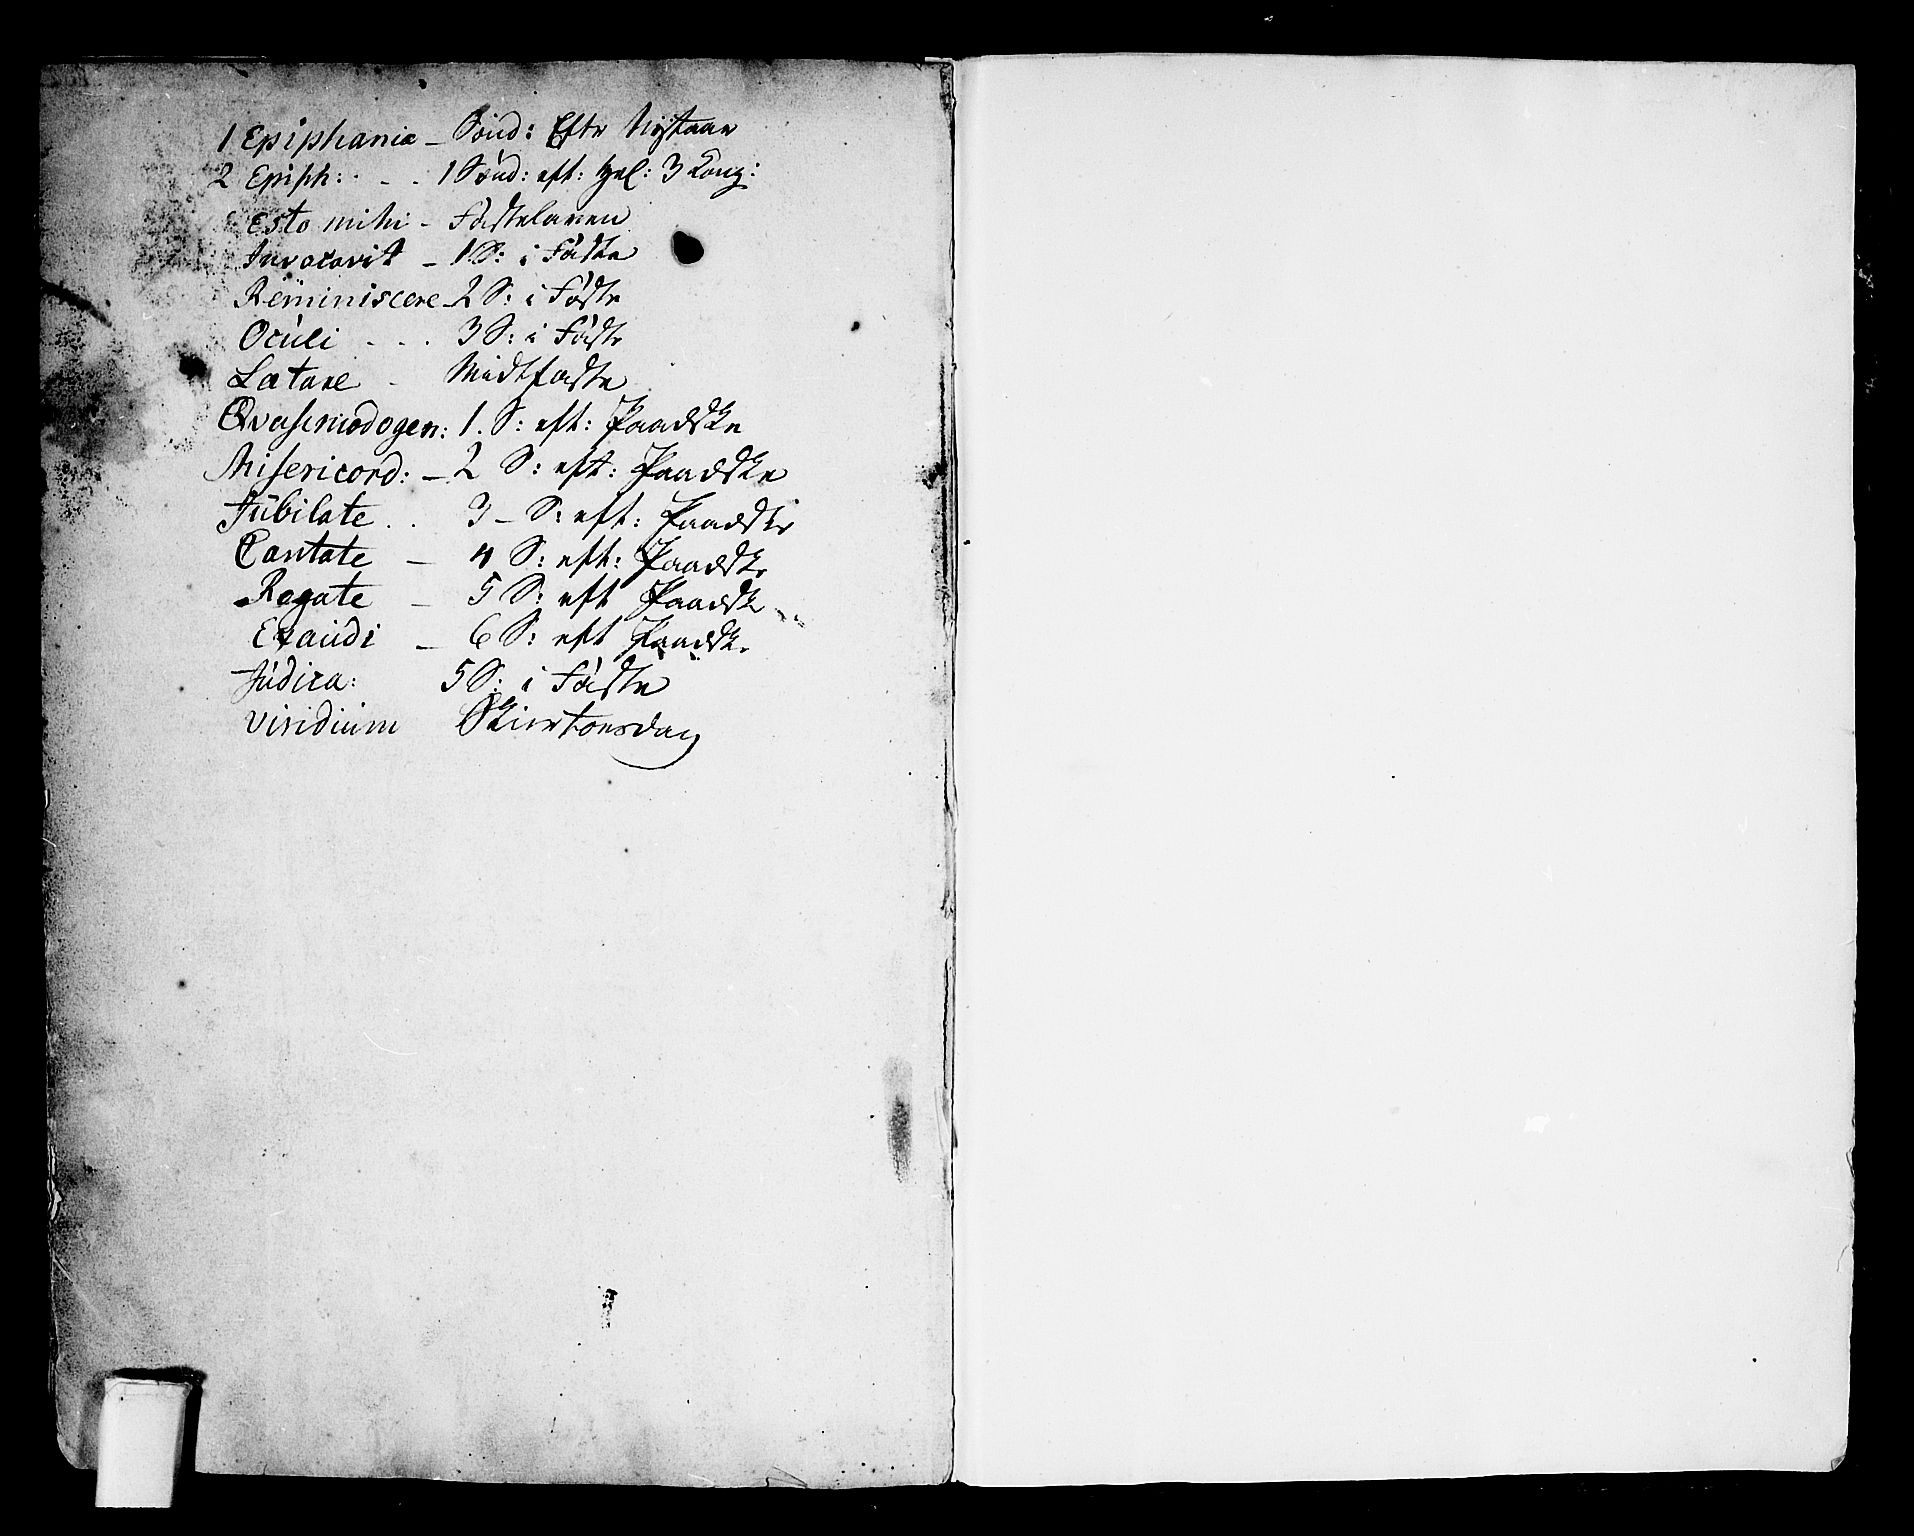 1 Epiphaniæ - Sönd: Efter Nÿtaar
2 Epiph: - . . 1 Sönd: eft: Hel: 3 Kong:
Esto mihi - Fastelaven
Invocavit - 1 S: i Faste
Reminiscere - 2 S: i Faste
Oculi - . . 3 S: i Faste
Lætare - Midtfaste
Qvasimodogen: 1. S: eft: Paadske
Misericord: - 2 S: eft: Paadske
Jubilate . . 3 - S: eft: Paadske
Cantate - 4 S: eft: Paadske
Rogate - 5 S: eft Paadske
Exaudi - 6 S: eft Paadske
Judica: 5 S: i Faste
Viridium Skiertorsdag